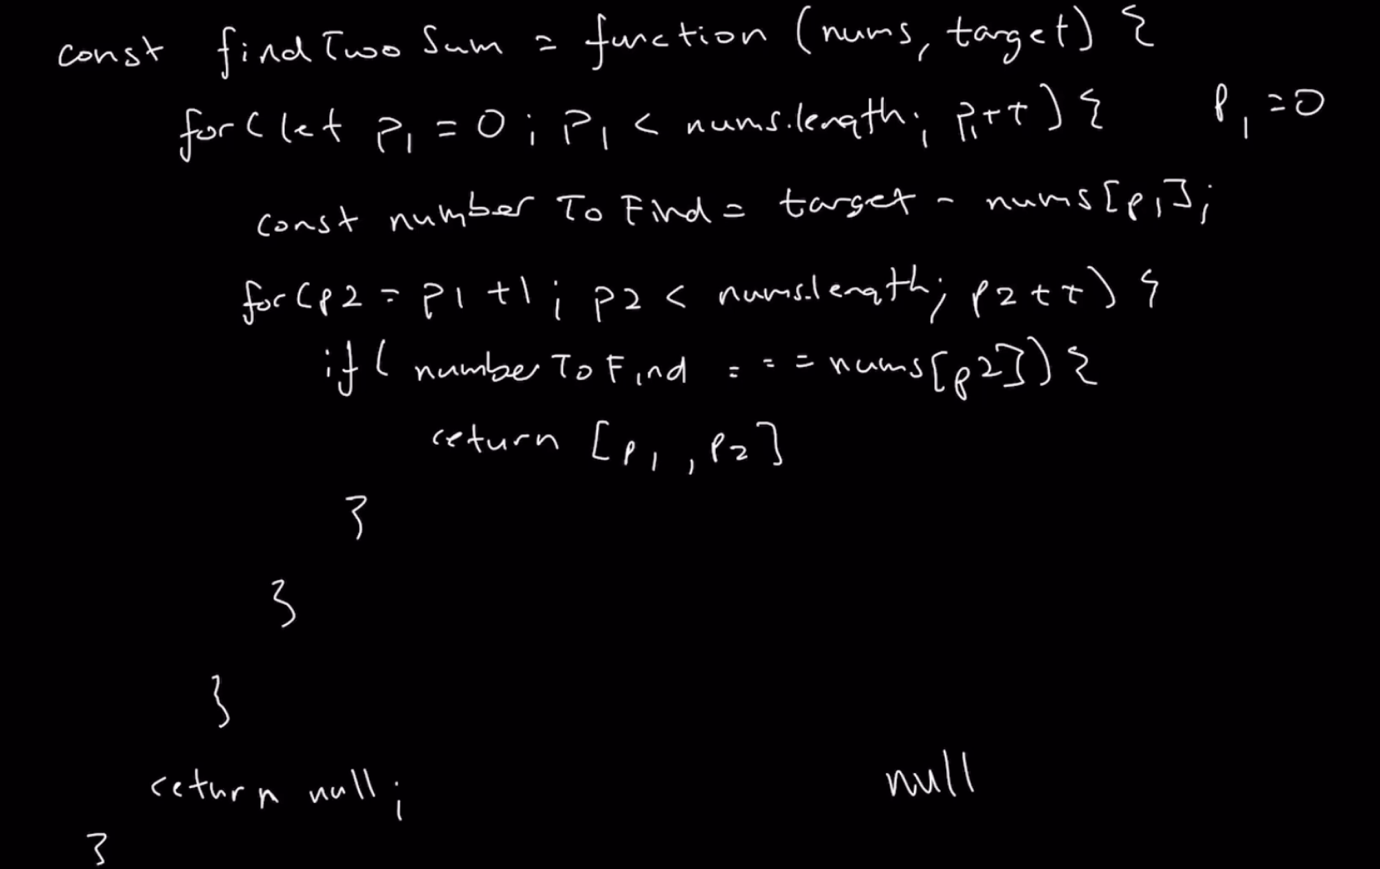 const findTwoSum = function (nums, target) {
for(let p1 = 0; p1 < nums.length; p1++) { p1 = 0
const numberToFind = target - nums[p1];
for(p2 = p1 + 1; p2 < nums.length; p2++) {
if( numberToFind === nums[p2]) {
return [p1, p2]
}
}
}
return null; null
}